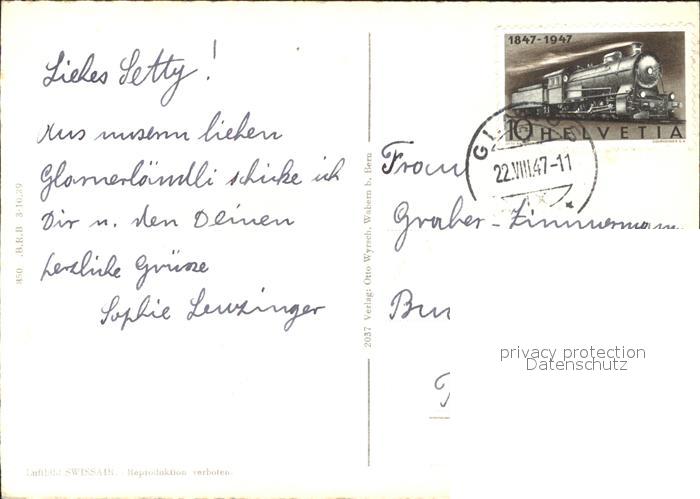 Liebes Setty!
Aus unserm lieben
Glarnerländli schicke ich
Dir u. den Deinen
herzliche Grüsse
Sophie Leuzinger
850 .B.R.B 3.10.39
2037 Verlag: Otto Wyrsch, Wabern b. Bern
Luftbild SWISSAIR. - Reproduktion verboten.
1847-1947
10 HELVETIA
22.VIII.47-11
Frau
Graber-Zimmermann
privacy protection
Datenschutz